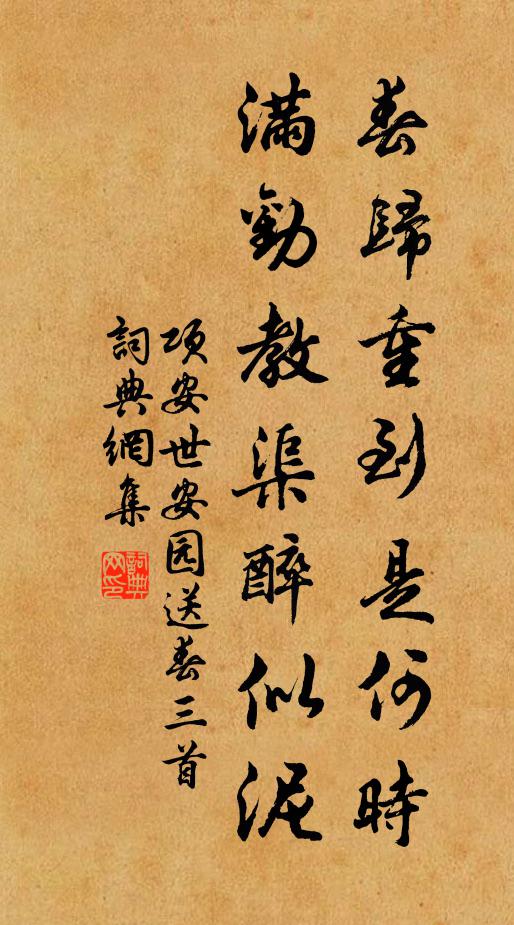 春歸重到是何時
滿勸教渠醉似泥
项安世安园送春三首
詞典網集
詞典
网印